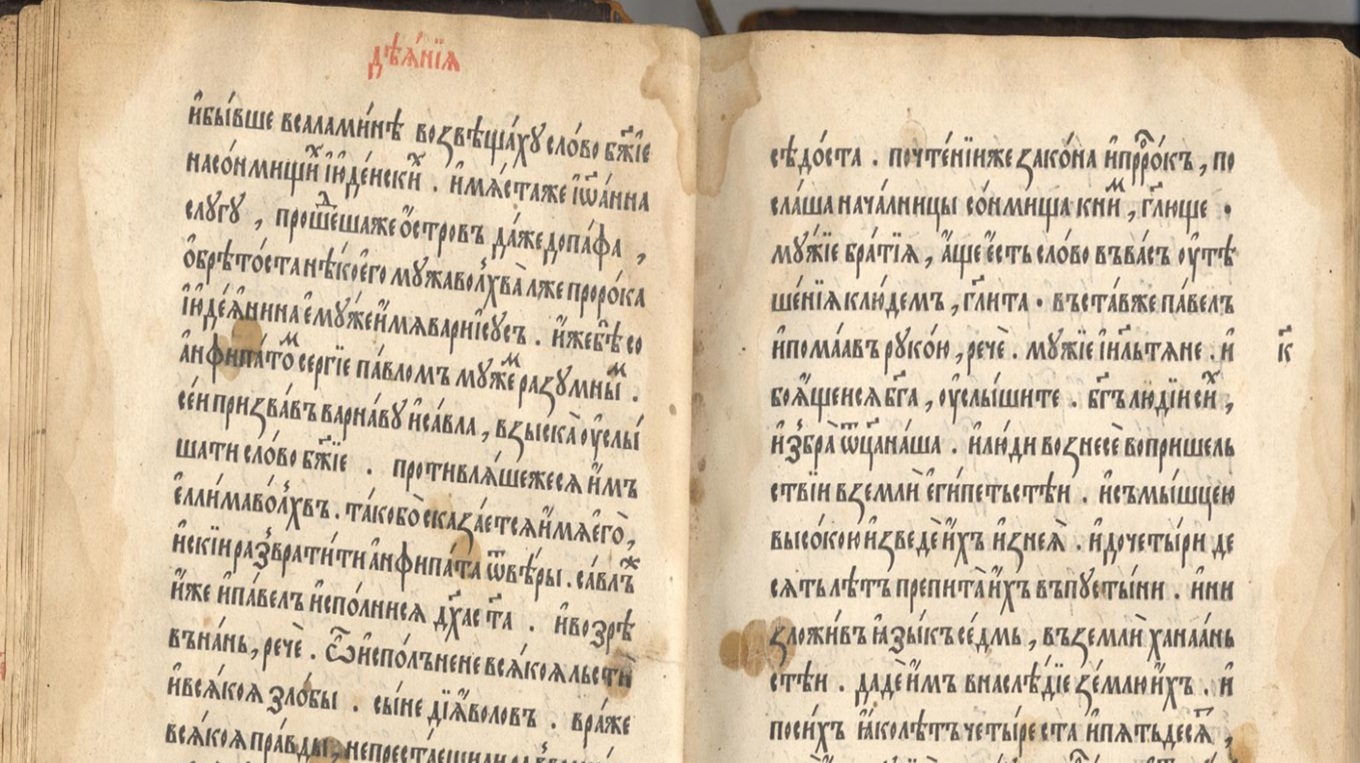 дѣѧ́нїѧ
и҆бы́вше всаламі́нѣ возвѣща́ху сло́во бж҃їе
насо́нмищи҃х і҆ю҆де́искі҃х . и҆мѧ́стаже і҆ѡ҃а́нна
слугу̀ , проше́дшаже ѻ҆́стровъ да́жедопа́фа ,
ѻ҆брѣто́ста нѣ́коего мужа волхва̀ лже проро́ка
і҆ю҆деѧ́нина є҆му́же и҆́мѧ варіису́съ . и҆́же бѣ̀ со
а҆нфипа́томъ се́ргїе па́вломъ му́жемъ разу́мнымъ .
се́и призва́въ варна́ву и҆са́вла , взыска̀ ѹ҆слы́
шати сло́во бж҃їе . противлѧ́шежесѧ и҆́мъ
є҆лли́ма во́лхвъ . та́кобо̀ сказа́етсѧ и҆́мѧ є҆го̀ ,
и҆скі́и развратити а҆нфипа́та ѿвѣ́ры . са́влъ
и҆́же и҆па́велъ и҆спо́лнисѧ дх҃а ст҃а . и҆возрѣ́
въна́нь , речѐ . ѽ и҆спо́лъне́не всѧ́коѧ льстѝ
и҆всѧ́коѧ зло́бы . сы́не дїѧ́воловъ . вра́же
всѧ́коѧ пра́вды , непреста́еши ли развраща́ѧ
сѣдо́ста . почте́нїиже зако́на и҆прⷪ҇ро́къ , по
сла́ша нача́лницы со́нмища кни́мъ , гл҃юще .
му́жїе бра́тїѧ , а҆́ще є҆́сть сло́во въва́съ ѹ҆тѣ
ше́нїѧ клю́демъ , гл҃ита . въста́вже па́велъ
и҆пома́авъ руко́ю , речѐ . му́жїе і҆и҃льтѧне . и҆
к҃
боѧ́щеисѧ бг҃а , ѹ҆слы́шите . бг҃ъ лю́дїи си́хъ ,
и҆збра̀ ѿц҃а на́ша . и҆лю́ди вознесѐ вопришель
ствїи вземлѝ є҆ги́петьстѣи . и҆съмы́шцею
высо́кою и҆зведѐ и҆́хъ и҆знеѧ̀ . и҆дочеты́ри де
сѧтьлѣ́тъ препита̀ и҆́хъ въпусты́ни . и҆ни
зложи́въ ꙗ҆зы́къ се́дмь , въземлѝ ханаа́нь
стѣи . дадѐ и҆́мъ внаслѣ́дїе зе́млю и҆́хъ . и҆
поси́хъ ꙗ҆́ко лѣ́тъ четы́реста и҆пѧтьдесѧ́т ,